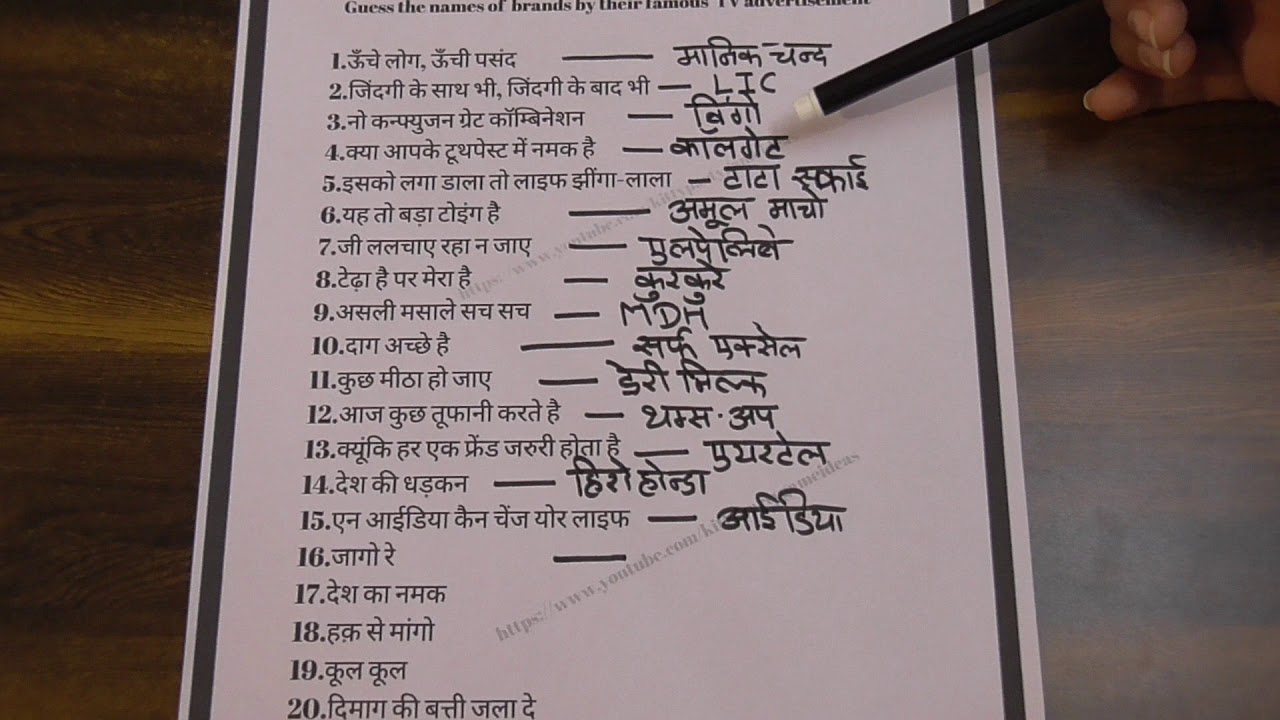 Guess the names of brands by their famous TV advertisement
1.ऊँचे लोग, ऊँची पसंद —— मानिक चन्द
2.जिंदगी के साथ भी, जिंदगी के बाद भी — LIC
3.नो कन्फ्युजन ग्रेट कॉम्बिनेशन — बिंगो
4.क्या आपके टूथपेस्ट में नमक है — कॉलगेट
5.इसको लगा डाला तो लाइफ झींगा-लाला — टाटा स्काई
6.यह तो बड़ा टोइंग है —— अमूल माचो
7.जी ललचाए रहा न जाए —— पुलपेन्लिबे
8.टेढ़ा है पर मेरा है — कुरकुरे
9.असली मसाले सच सच — MDH
10.दाग अच्छे है —— सर्फ एक्सेल
11.कुछ मीठा हो जाए —— डेरी मिल्क
12.आज कुछ तूफानी करते है — थम्स-अप
13.क्यूंकि हर एक फ्रेंड जरुरी होता है —— एयरटेल
14.देश की धड़कन —— हिरो होन्डा
15.एन आईडिया कैन चेंज योर लाइफ — आईडिया
16.जागो रे ——
17.देश का नमक
18.हक़ से मांगो
19.कूल कूल
20.दिमाग की बत्ती जला दे